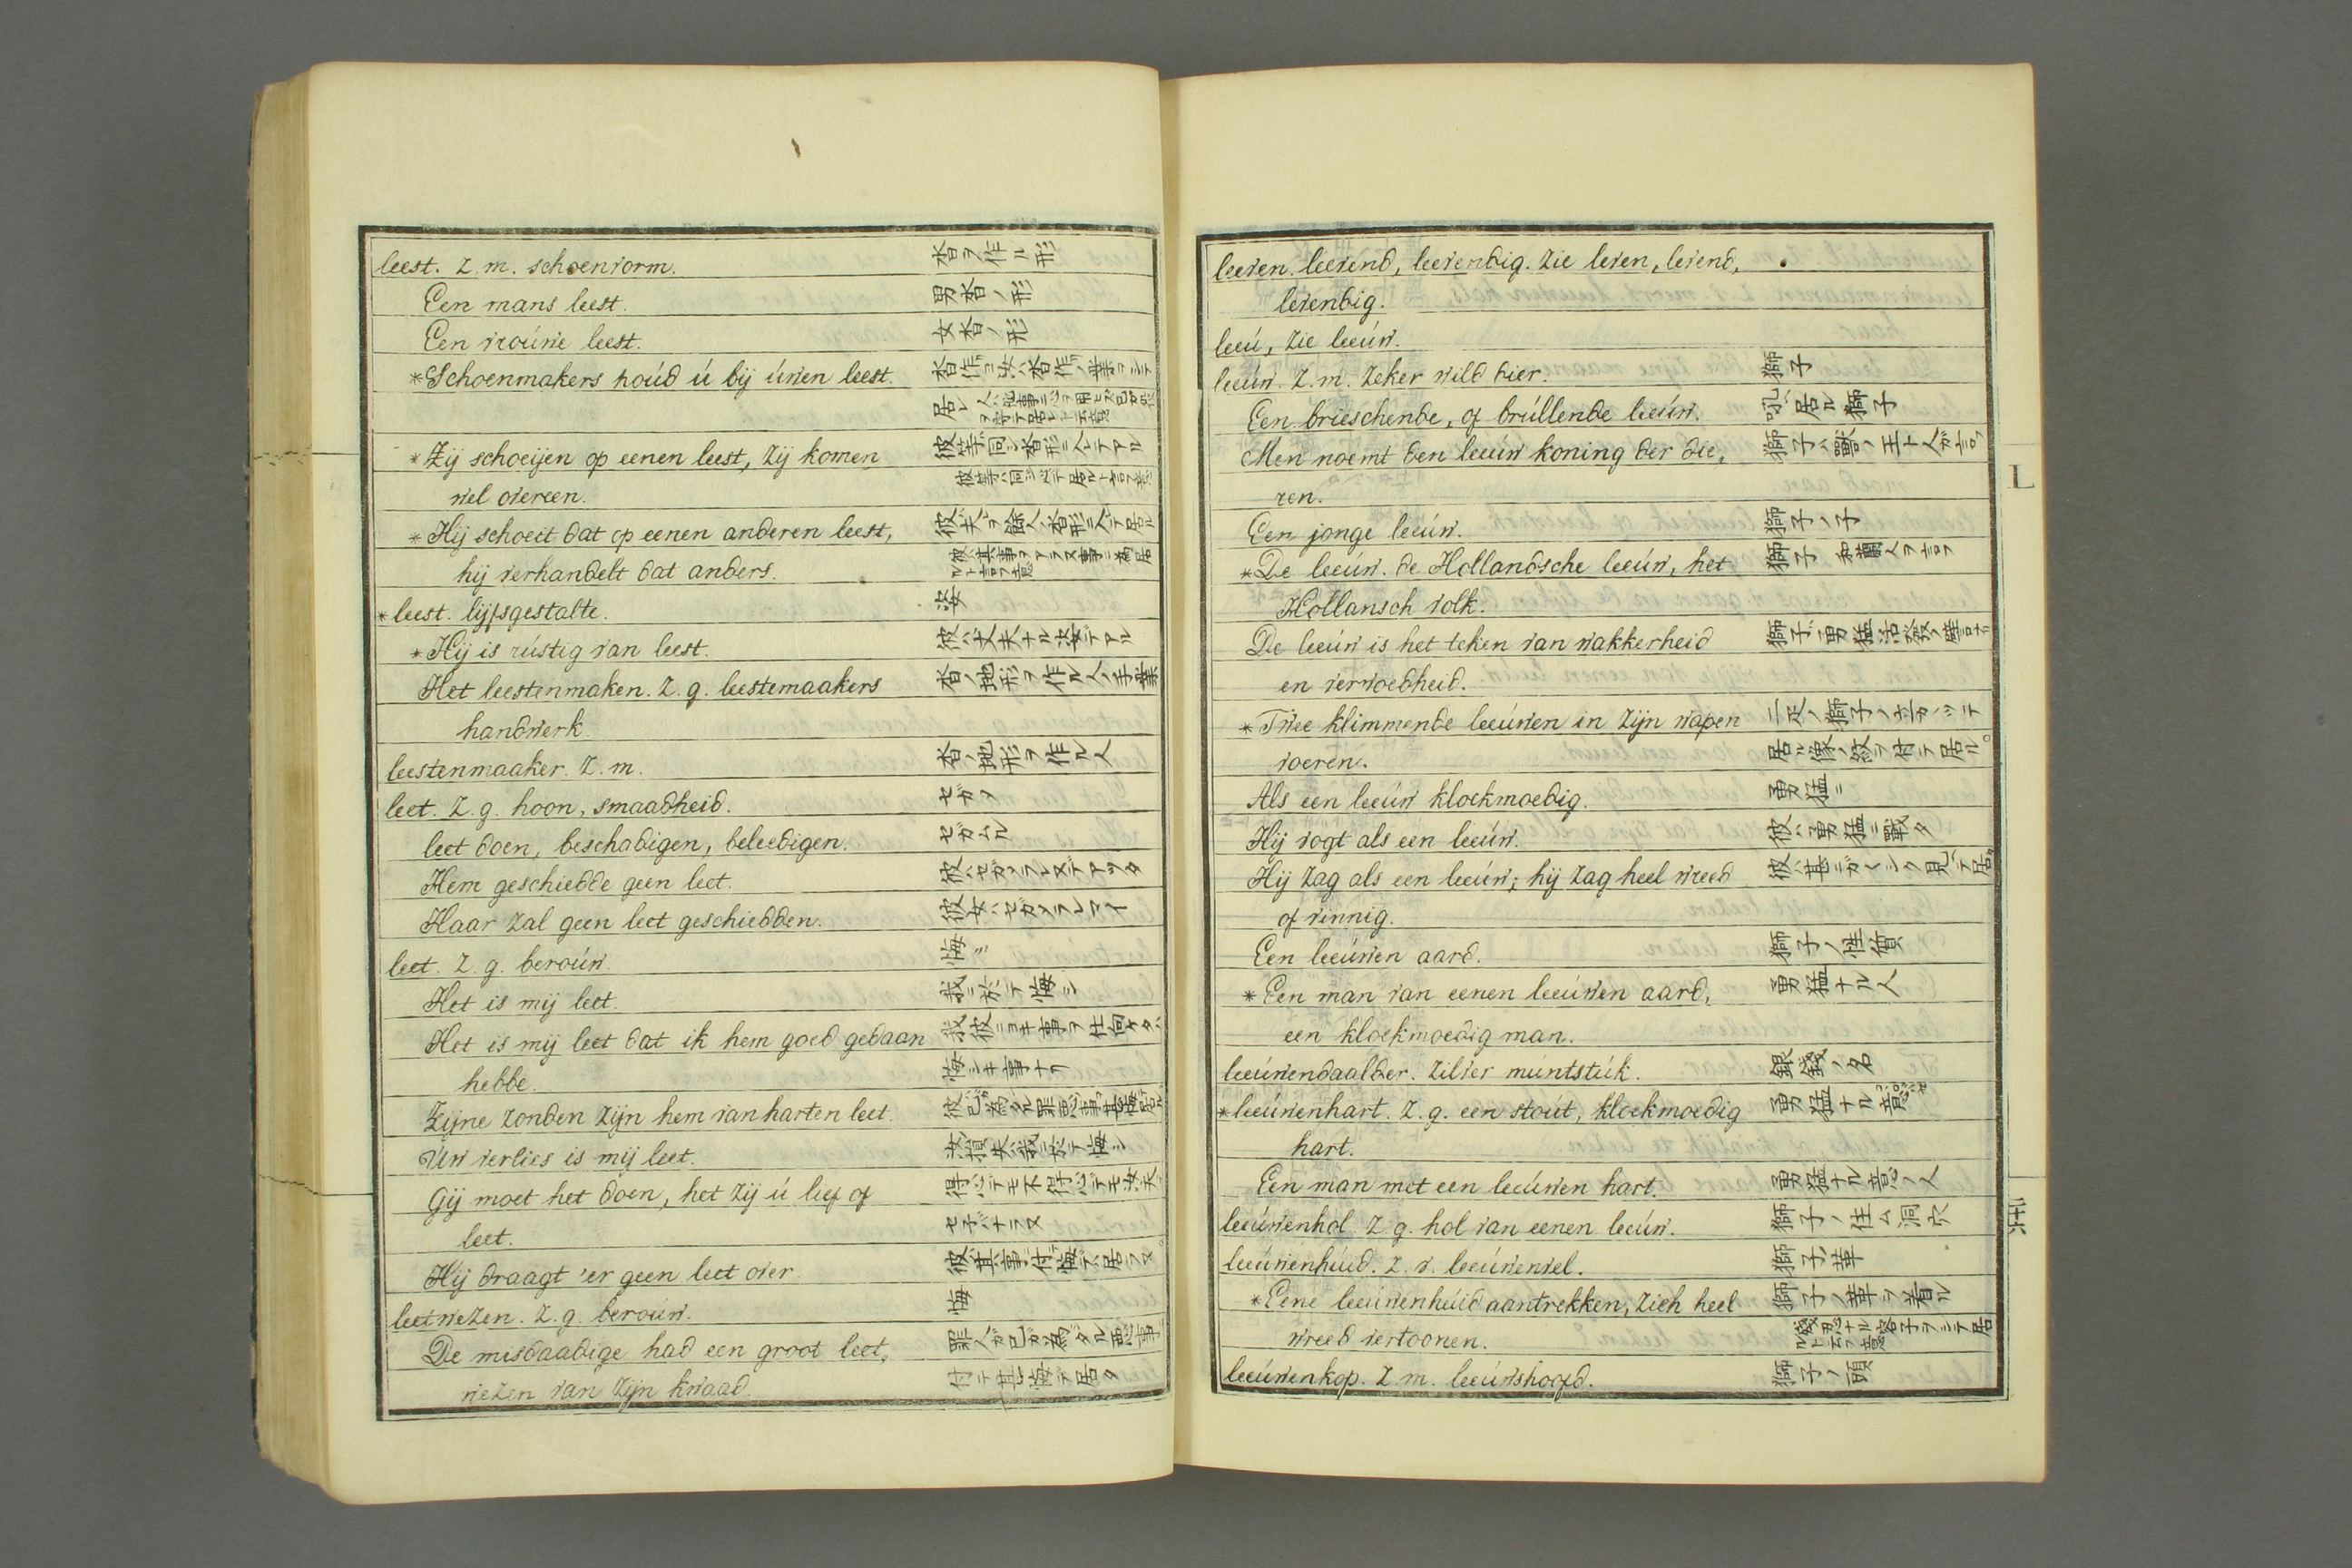 leest. z. m. schoenvorm. 沓ヲ作ル形
Een mans leest. 男沓ノ形
Een vroúwe leest. 女沓ノ形
*Schoenmakers hoúd ú bij úwen leest. 沓作ノ業ヲシテ
居レ
*Zij schoeijen op eenen leest, zij komen 彼等ハ同シ沓形ニ入レテアル
wel overeen.
*Hij schoeit dat op eenen anderen leest,
hij verhandelt dat anders.
*leest. lijfsgestalte. 姿
*Hij is rústig van leest. 彼ハ丈夫ナル姿デアル
Het leestenmaken. z. g. leestemaakers 沓ノ地形ヲ作ル人ノ手業
handwerk.
leestenmaaker. z. m. 沓ノ地形ヲ作ル人
leet. z. g. hoon, smaadheid.
leet doen, beschadigen, beleedigen. セガムル
Hem geschiedde geen leet.
Haar zal geen leet geschiedden.
leet. z. g. beroúw. 悔
Het is mij leet. 我ニ於テ悔シ
Het is mij leet dat ik hem goed gedaan
hebbe. 悔シキ事ナリ
Zijne zonden zijn hem van harten leet.
Uw verlies is mij leet.
Gij moet het doen, het zij ú lief of
leet. セ子バナラヌ
Hij draagt 'er geen leet over
leetwezen. z. g. beroúw. 悔
De misdaadige had een groot leet,
wezen van zijn kwaad. 付テ甚悔デ居タ
leeven. leevend, leevendig. zie leven, levend,
levendig.
leeú, zie leeúw.
leeúw. z. m. zeker wild dier. 獅子
Een brieschende, of brúllende leeúw. 吼テ居ル獅子
Men noemt den leeúw koning der die, 獅子ハ獸ノ王ト人ガ言フ
ren.
Een jonge leeúw. 獅子ノ子
*De leeúw. de Hollandsche leeúw, het 獅子 和蘭人ヲ言フ
Hollansch volk.
De leeúw is het teken van wakkerheid
en verwoedheid.
*Twee klimmende leeúwen in zijn wapen 二疋ノ獅子ノ立ガツテ
voeren. 居ル像ノ紋ヲ付テ居ル。
Als een leeúw kloekmoedig. 勇猛ニ
Hij vogt als een leeúw. 彼ハ勇猛ニ戰タ
Hij zag als een leeúw; hij zag heel wreed
of vinnig.
Een leeúwen aard. 獅子ノ性質
*Een man van eenen leeúwen aard, 勇猛ナル人
een kloekmoedig man.
leeúwendaalder. zilver múntstúk. 銀錢ノ名
*leeúwenhart. z. g. een stoút, kloekmoedig 勇猛ナル意
hart.
Een man met een leeúwen hart. 勇猛ナル意ノ人
leeúwenhol. z. g. hol van eenen leeúw. 獅子ノ住ム洞穴
leeúwenhúid. z. v. leeúwenvel. 獅子ノ革
*Eene leeúwenhúid aantrekken, zich heel 獅子ノ革ヲ着ル
wreed vertoonen.
leeúwenkop. z. m. leeúwshoofd. 獅子ノ頭
L